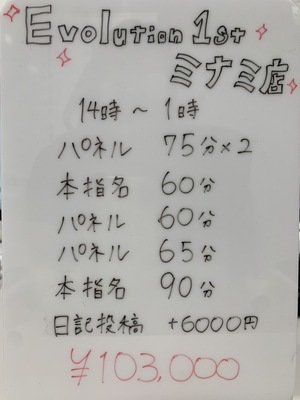 Evolution 1st
ミナミ店
14時 ～ 1時
パネル 75分×2
本指名 60分
パネル 60分
パネル 65分
本指名 90分
日記投稿 +6000円
¥103,000